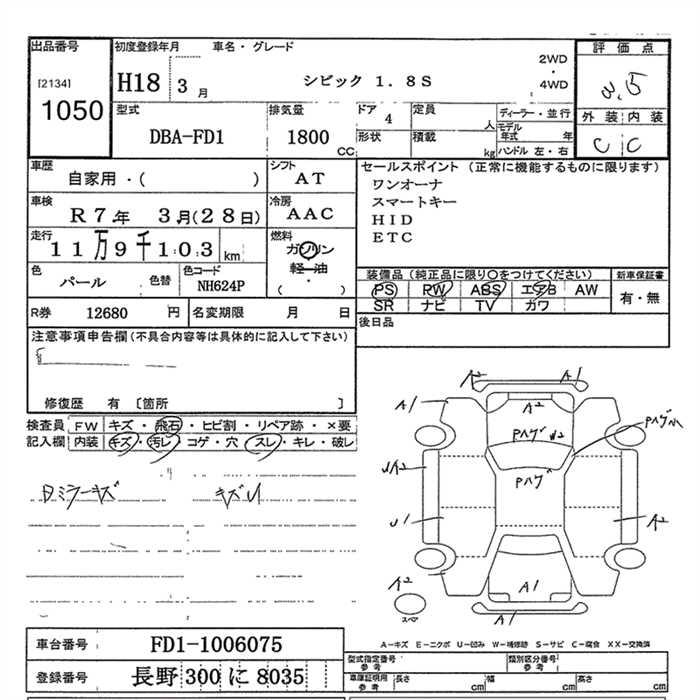 出品番号
[2134]
1050
初度登録年月
H18 3 月
車名・グレード
シビック 1.8S
2WD
・
4WD
評価点
3.5
外装 内装
C C
型式
DBA-FD1
排気量
1800
CC
ドア
4
形状
定員
人
積載
kg
ディーラー・並行
モデル年式 年
ハンドル 左・右
車歴
自家用・( )
シフト
AT
車検
R7年 3月(28日)
冷房
AAC
走行
11万9千103 km
燃料
ガソリン
軽油
・
( )
色
パール
色替
色コード
NH624P
セールスポイント (正常に機能するものに限ります)
ワンオーナ
スマートキー
HID
ETC
装備品 (純正品に限り〇をつけてください)
PS RW ABS エアB AW
SR ナビ TV カワ
新車保証書
有・無
R券
12680 円
名変期限
月 日
後日品
注意事項申告欄 (不具合内容等は具体的に記入して下さい)
修復歴 有 〔箇所 〕
検査員
記入欄
FW キズ・飛石・ヒビ割・リペア跡・×要
内装 キズ・汚レ・コゲ・穴・スレ・キレ・破レ
ミラーキズ
キズU
A2
A1
A1
A2
PハゲW2
Pハゲ
Pハゲ
U2
U1
A2
A2
A1
A1
スペア
A-キズ E-エクボ U-凹み W-補修跡 S-サビ C-腐食 XX-交換済
車台番号
FD1-1006075
登録番号
長野 300 に 8035
型式指定番号
参考
類別区分番号
参考
車庫証明用
参考
長さ
cm
幅
cm
高さ
cm